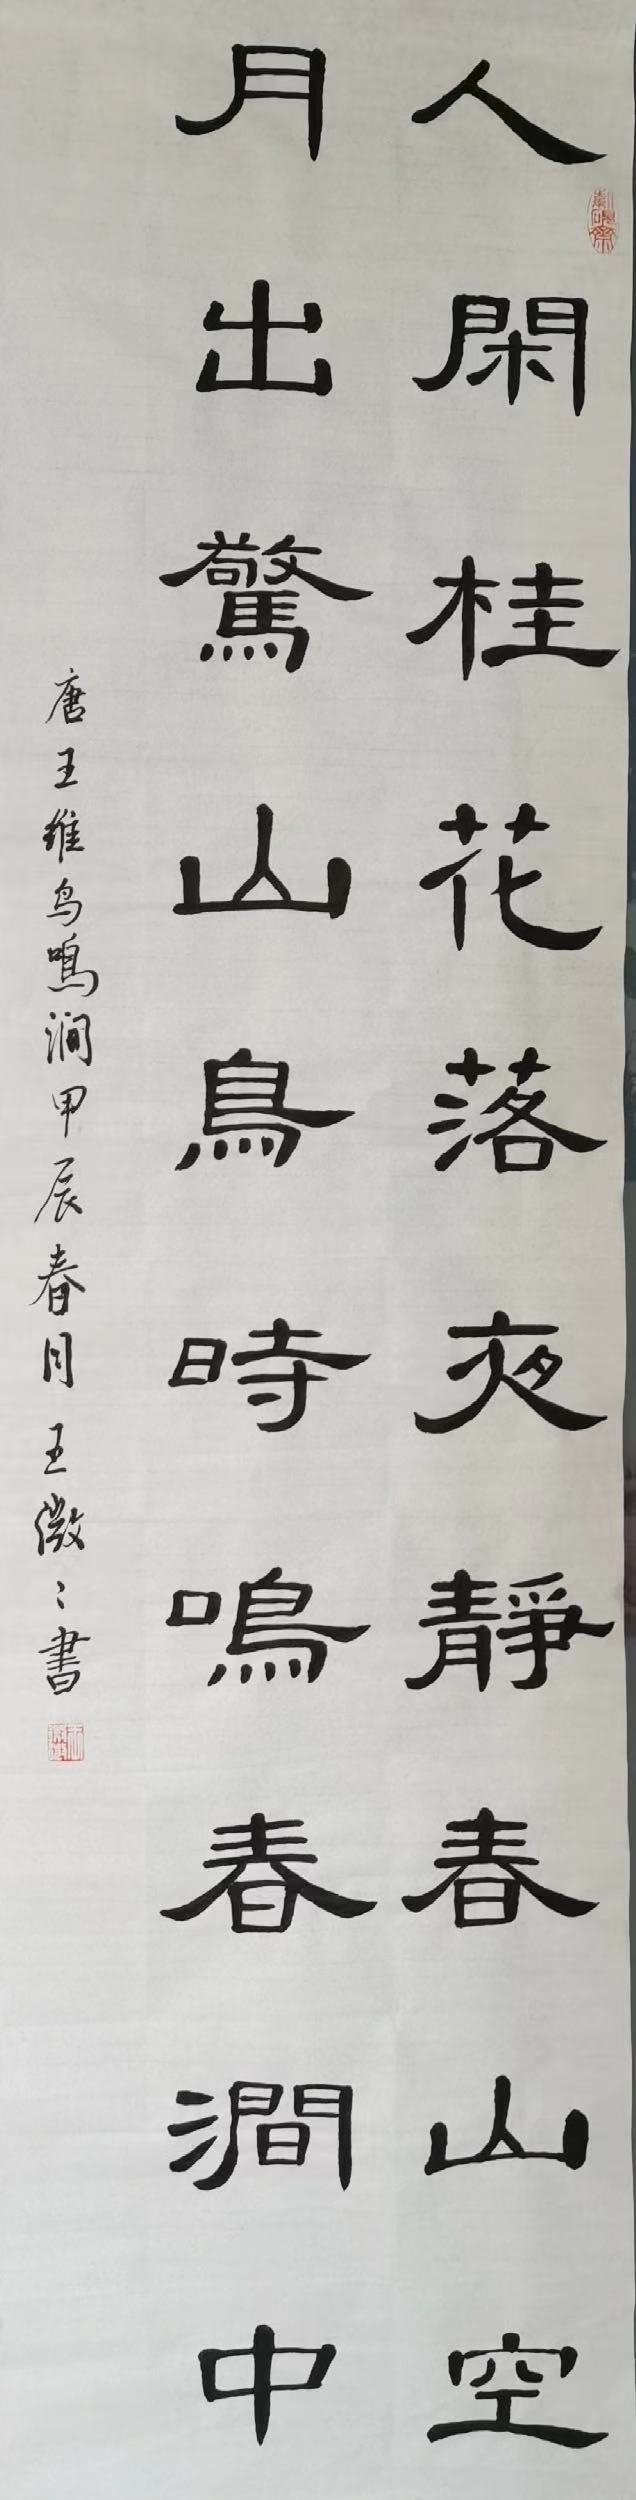 人閑桂花落夜靜春山空
月出驚山鳥時鳴春澗中
唐王维鸟鳴澗甲辰春月王微〻書